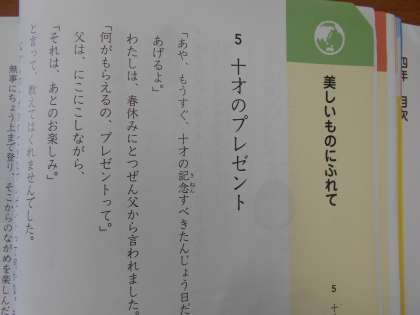 四年 目次
美しいものにふれて
5 十
5 十才のプレゼント
「あや、もうすぐ、十才の記念すべきたんじょう日だ
きねん
あげるよ」。
わたしは、春休みにとつぜん父から言われました。
「何がもらえるの、プレゼントって」。
父は、にこにこしながら、
「それは、あとのお楽しみ」。
と言って、教えてはくれませんでした。
無事にちょう上まで登り、そこからのながめを楽しんだ